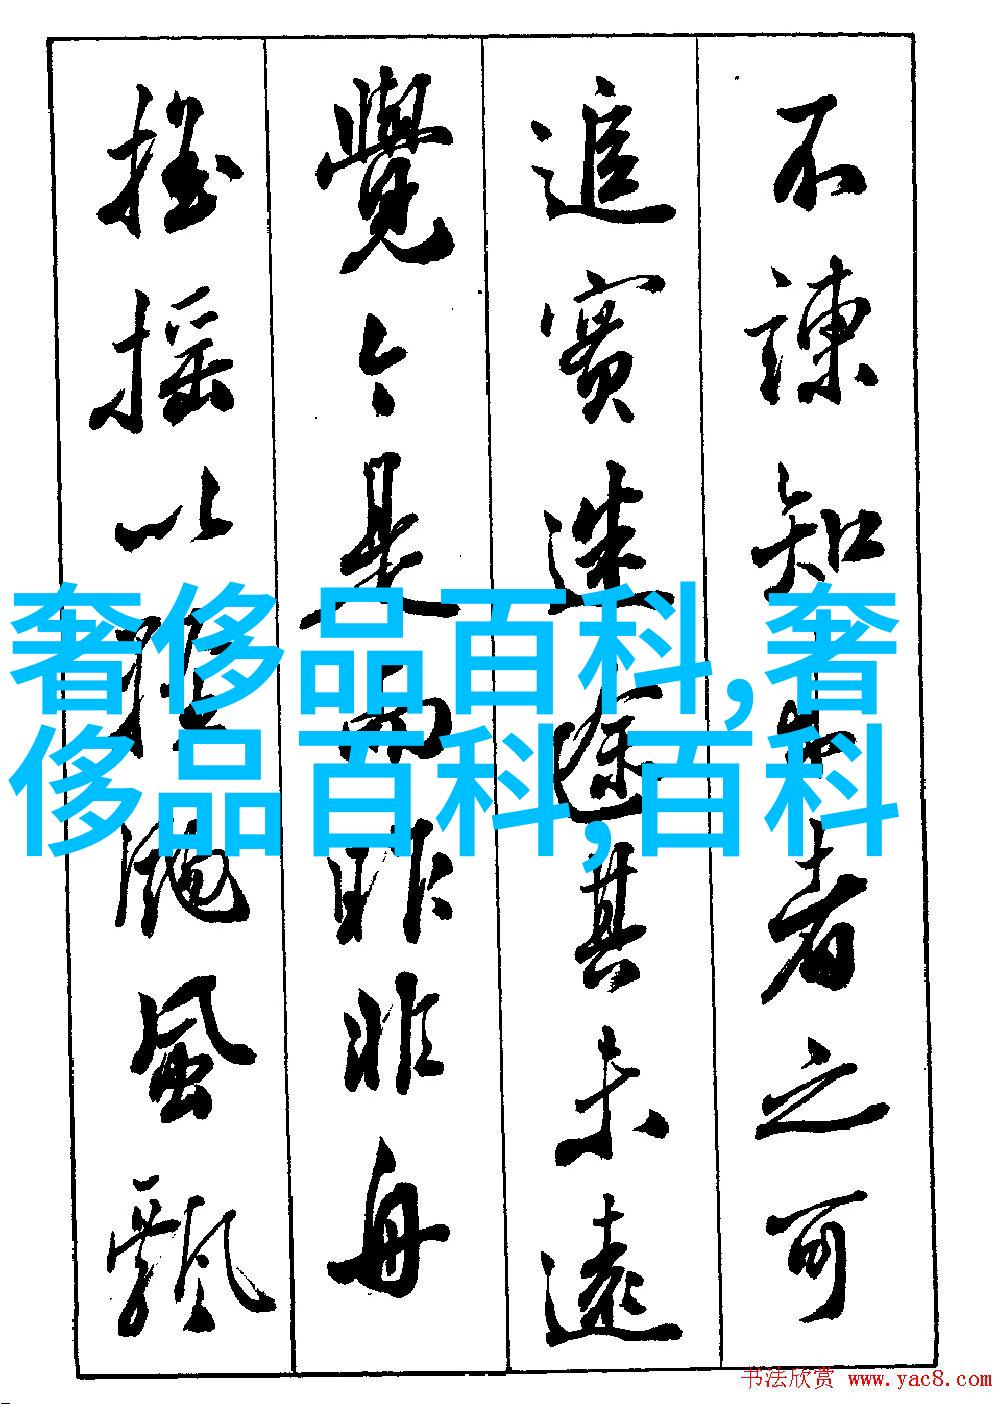 不諫知来者之可
追實迷途其未遠
覺今是而昨非舟
搖搖以輕颺風飄
奢侈品百科,奢
侈品百科,百科
书法欣赏 www.yac8.com